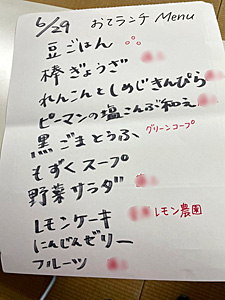 6/29 おてランチ Menu
豆ごはん
棒ぎょうざ
れんこんとしめじきんぴら
ピーマンの塩こんぶ和え
黒ごまとうふ グリーンコープ
もずくスープ
野菜サラダ
レモンケーキ レモン農園
にんじんゼリー
フルーツ